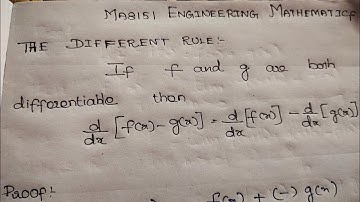 MA8151 ENGINEERING MATHEMATICS
THE DIFFERENT RULE:-
If f and g are both
differentiable than
d/dx [f(x) - g(x)] = d/dx [f(x)] - d/dx [g(x)]
Proof:
f(x) + (-) g(x)